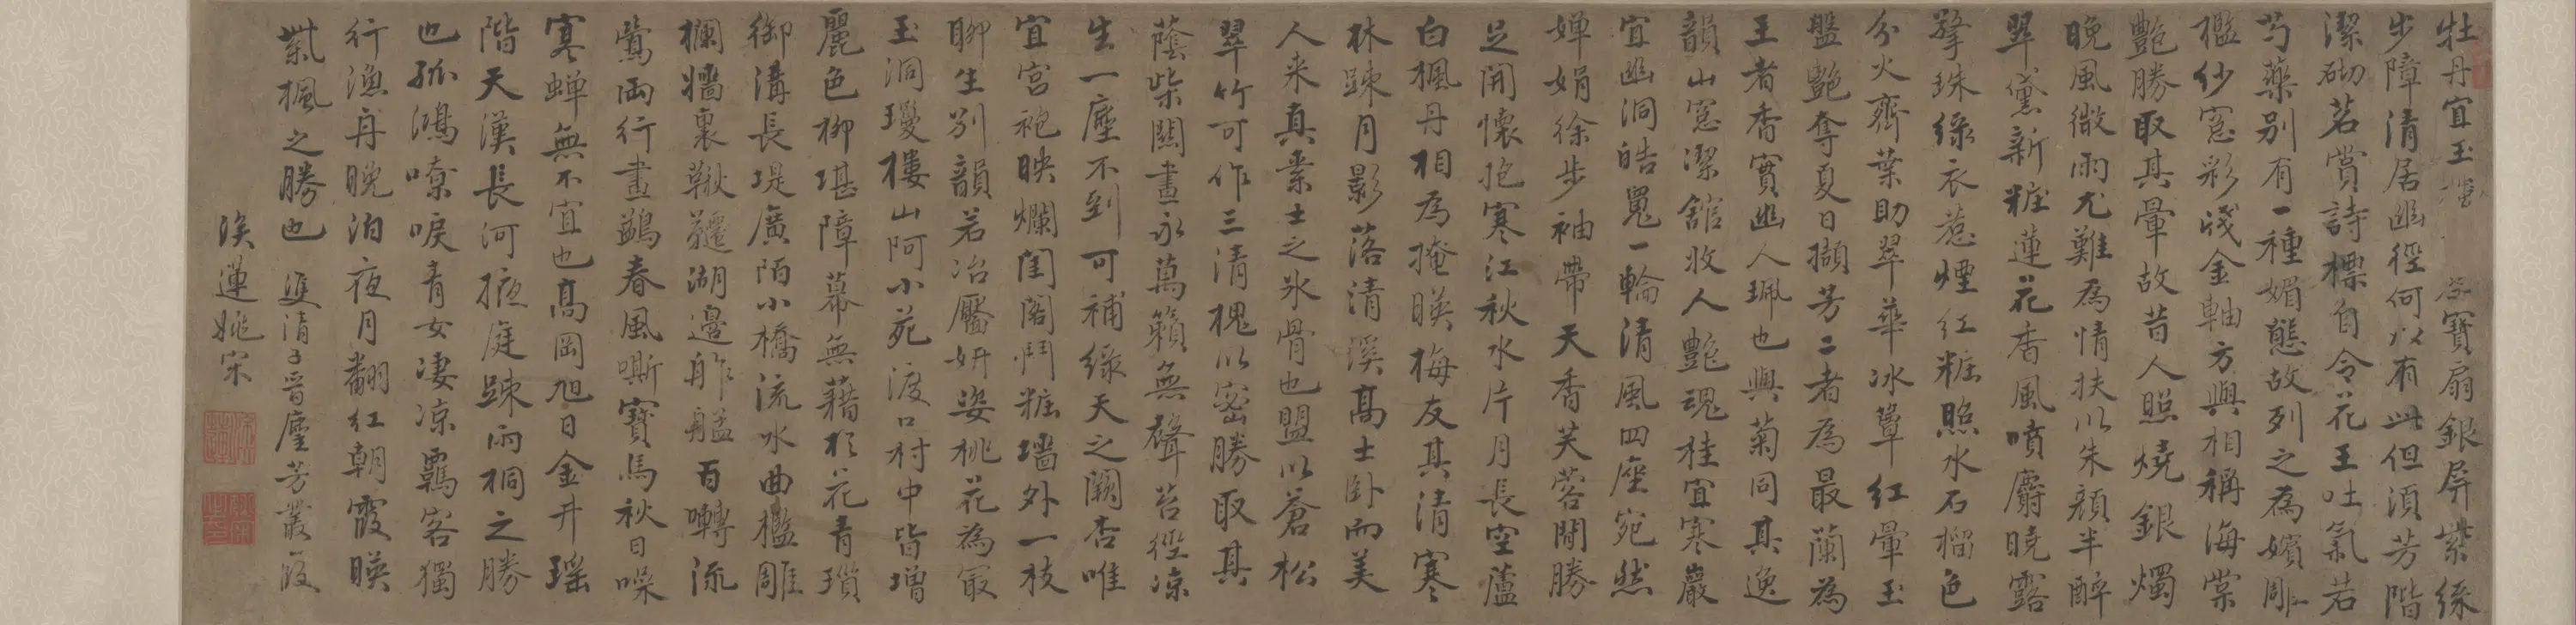 牡丹宜玉寶扇銀屏紫絲
步障清居幽徑何以有此但須芳階
潔砌茗賞詩標自令花王吐氣若
芍藥別有一種媚態故列之為嬪雕
檻紗窓彩牋金軸方與相稱海棠
艷勝取其暈故昔人照燒銀燭
晚風微雨尤難為情扶以朱顏半醉
翠黛新粧蓮花香風噴麝曉露
擎珠綠衣惹煙紅粧照水石榴色
分火齊葉助翠華冰簟紅暈玉
盤艷奪夏日擷芳二者為最蘭為
王者香實幽人珮也與菊同其逸
韻山窓潔館收人艷魂桂宜寒巖
宜幽洞皓魄一輪清風四座宛然
嬋娟徐步袖帶天香芙蓉閒勝
足開懷抱寒江秋水片月長空蘆
白楓丹相為掩暎梅友其清寒
林疎月影落清溪高士卧而美
人来真素士之氷骨也盟以蒼松
翠竹可作三清槐以密勝取其
蔭柴關晝永萬籟無聲苔徑凉
生一塵不到可補綠天之闕杏唯
宜宮袍映爛閨閣鬥粧墻外一枝
聊生別韻若冶靨妍姿桃花為冣
玉洞瓊樓山阿小苑渡口村中皆增
麗色柳堪障幕無藉於花青瑣
御溝長堤廣陌小橋流水曲檻雕
欄牆裏鞦韆湖邊舴艋百囀流
鶯兩行畫鷁春風嘶寶馬秋日噪
寒蟬無不宜也高岡旭日金井瑤
階天漢長河掖庭踈雨桐之勝
也孤鴻嘹唳青女凄凉羈客獨
行漁舟晚泊夜月翻紅朝霞暎
紫楓之勝也 雙清子晉麈芳叢一段
俟蓮姚宋